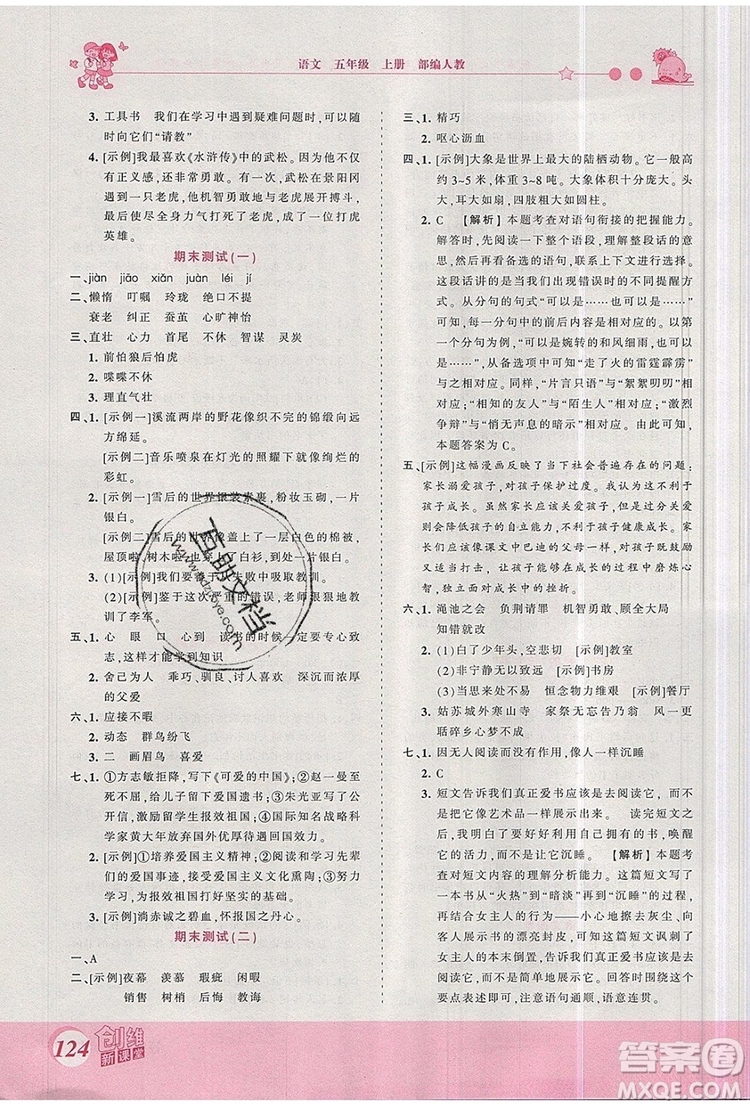 语文 五年级 上册 部编人教
3. 工具书 我们在学习中遇到疑难问题时,可以随
时向它们“请教”
4. [示例]我最喜欢《水浒传》中的武松。他是一个
有正义感、勇敢、有力量的人。有一次,他在景阳冈
遇到一只老虎,他机智勇敢地与老虎展开搏斗,
最后尽全身力气打死了老虎,成为有名的打虎
英雄。
期末测试(一)
一、jiàn jiāo xiǎn juàn léi jí
二、懒惰 叮嘱 玲珑 绝口不提
衰老 纠正 蚕茧 心旷神怡
三、直壮 心力 首尾 不休 智谋 灵炭
1. 前怕狼后怕虎
2. 喋喋不休
3. 理直气壮
四、1. [示例一]溪流两岸的野花像织不完的锦缎向远
方绵延。
[示例二]音乐喷泉在灯光的照耀下就像绚烂的
彩虹。
2. [示例一]雪后的世界银装素裹,粉妆玉砌,一片
银白。
[示例二]雪后的世界像盖上了一层白色的棉被,
屋顶啦,树木啦,也穿上了白衫,出来凑热闹了。
3. (1)[示例]我们要善于从失败中吸取教训。
(2)[示例]鉴于这次严重的错误,老师狠狠地教
训了李军。
五、1. 心 眼 口 心到 读书的时候一定要专心致
志,这样才能学到知识
2. 舍己为人 乖巧、驯良、讨人喜欢 深沉而浓厚
的父爱
六、1. 应接不暇
2. 动态 群鸟纷飞
3. 二 画眉鸟 喜爱
七、1. ①方志敏拒降,写下《可爱的中国》;②吴吉昌
给儿子留下爱国遗书;③朱光亚写下
公开信,激励留学生报国;④知名战略科
学家黄大年放弃国外优厚待遇回国效力。
2. [示例]①培养爱国主义精神;②阅读和学习先辈
们的爱国主义事迹,受到感染和熏陶;③努力
学习,为爱国打好坚实的基础。
3. [示例]淌赤诚之碧血,怀报国之丹心。
期末测试(二)
一、A
二、[示例]夜幕 羡慕 瑕疵 闲暇
销售 树梢 后悔 教诲
三、1. 精巧
2. 呕心沥血
四、1. [示例]大象是世界上最大的陆栖动物。它一般高
约3~5米,体重3~8吨。大象体积十分庞大。头
大,耳大如扇,四肢粗大如圆柱。
2. C [解析]本题考查对语句衔接的把握能力。
解答时,先阅读一下句子,对整段话的大意有所
思考,再看备选的语句,联系上下文进行选择。
这段话讲的是当我们出现错误时的不同提醒方
式。从分句的句式“可以是……也可以是……”
可知,每一分句中的前后内容是相对应的。如
第一分句为例,“可以是婉转的和风细雨,也可
以是……”,从备选项中可知“走了火的雷霆霹雳”
与之相对应。同样,“片言只语”与“絮絮叨叨”
相对应;“相知的友人”与“陌生人”相对应;“激烈
争辩”与“悄无声息的暗示”相对应。由此可知,
本题答案为C。
五、[示例]这幅漫画反映了当今社会普遍存在的问题:
家长溺爱孩子,对孩子保护过度。家长的溺爱不利于
孩子成长。虽然家长应该关爱孩子,但更应该
培养孩子的自立能力,不可成为孩子健康成长。家长
应该像课文中巴迪的父母那样,对孩子既鼓励
又指正,让孩子能够在成长的过程中磨练心
智,勇敢面对成长中的挫折。
六、1. 渑池之会 负荆请罪 机智勇敢、顾全大局
知错就改
2. (1)白了少年头,空悲切 [示例]教室
(2)非宁静无以致远 [示例]书房
(3)当思来处不易 恒念物力维艰 [示例]餐厅
3. 姑苏城外寒山寺 家祭无忘告乃翁 更
聒碎乡心梦不成
七、1. 因无人阅读而没有作用,像人一样沉睡
2. C
3. 短文告诉我们真正爱书应该去阅读它,而不是
把它像艺术品一样展示出来。 读完短文,我明
白了,真正爱书的人,应该去阅读更多的书,唤醒
它的活力,而不是让它沉睡。 [解析]本题考
查对短文内容的理解分析能力。这篇短文描写了
一本书从“火热”到“暗淡”再到“沉睡”的过程,
再结合女主人的行为——小心地擦去灰尘、向
客人展示它的漂亮封皮,可知这篇短文讽刺了
女主人的本末倒置,告诉我们真正爱书应该去
阅读它,而不是让它沉睡。回答时要围绕这个内容
展开,注意语句通顺,语意连贯。
124
创维
新课堂
互助文档
答案圈
MXQE.COM